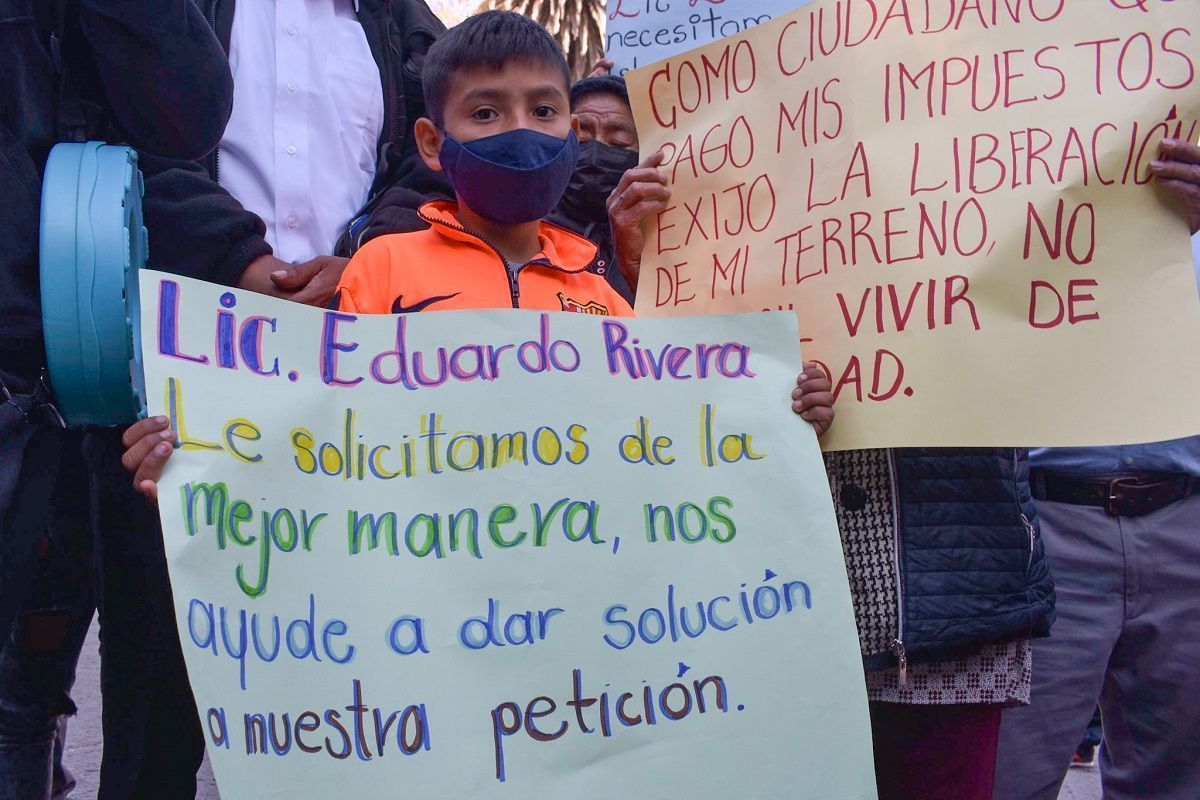 Lic.
necesitam
COMO CIUDADANO
PAGO MIS IMPUESTOS
EXIJO LA LIBERACIÓN
DE MI TERRENO, NO
VIVIR DE
Lic. Eduardo Rivera
Le solicitamos de la
mejor manera, nos
ayude a dar solución
a nuestra petición.